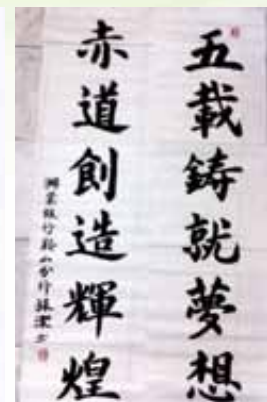 五載鑄就夢想
赤道創造輝煌